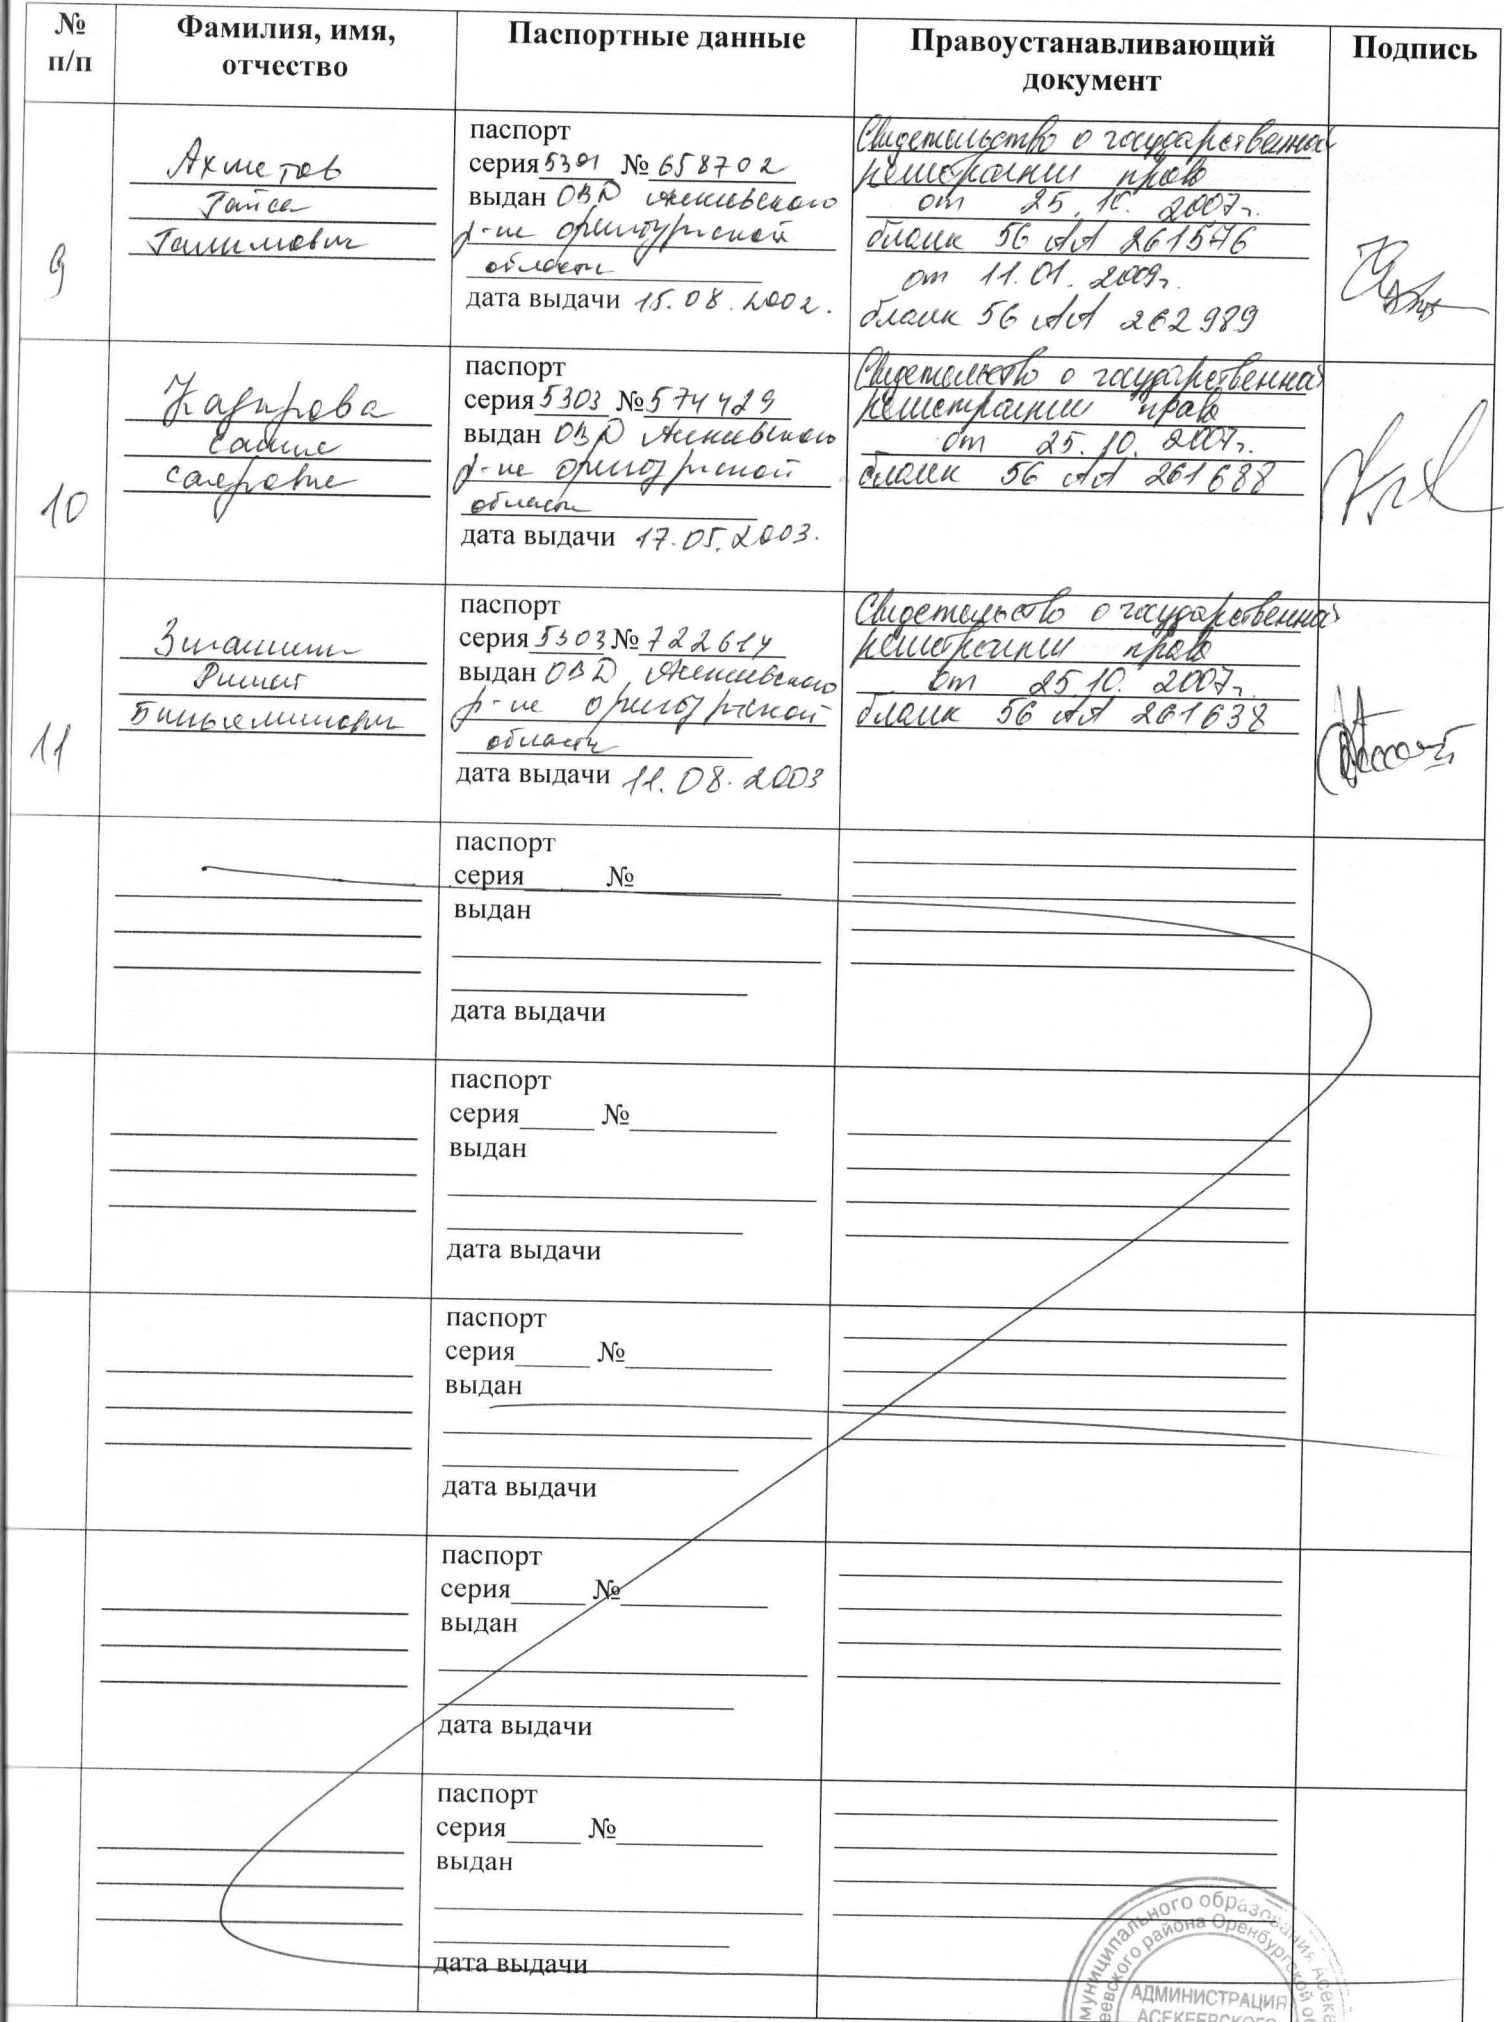 № п/п
Фамилия, имя, отчество
Паспортные данные
Правоустанавливающий документ
Подпись
9
Ахметов
Гайса
Галимович
паспорт
серия 5301 № 658702
выдан ОВД Асекеевского
р-на Оренбургской
области
дата выдачи 15.08.2002.
Свидетельство о государственной
регистрации права
от 25.10.2007г.
бланк 56 АА 261576
от 11.01.2009г.
бланк 56 АА 262989
10
Кадырова
паспорт
серия 5303 № 574429
выдан ОВД Асекеевского
р-на Оренбургской
области
дата выдачи 17.05.2003.
Свидетельство о государственной
регистрации права
от 25.10.2007г.
бланк 56 АА 261688
11
паспорт
серия 5303 № 722614
выдан ОВД Асекеевского
р-на Оренбургской
области
дата выдачи 11.08.2003
Свидетельство о государственной
регистрации права
от 25.10.2007г.
бланк 56 АА 261638
паспорт
серия №
выдан
дата выдачи
паспорт
серия №
выдан
дата выдачи
паспорт
серия №
выдан
дата выдачи
паспорт
серия №
выдан
дата выдачи
паспорт
серия №
выдан
дата выдачи
муниципального образования Асеке
еевского района Оренбургской об
АДМИНИСТРАЦИЯ
АСЕКЕЕВСКОГО